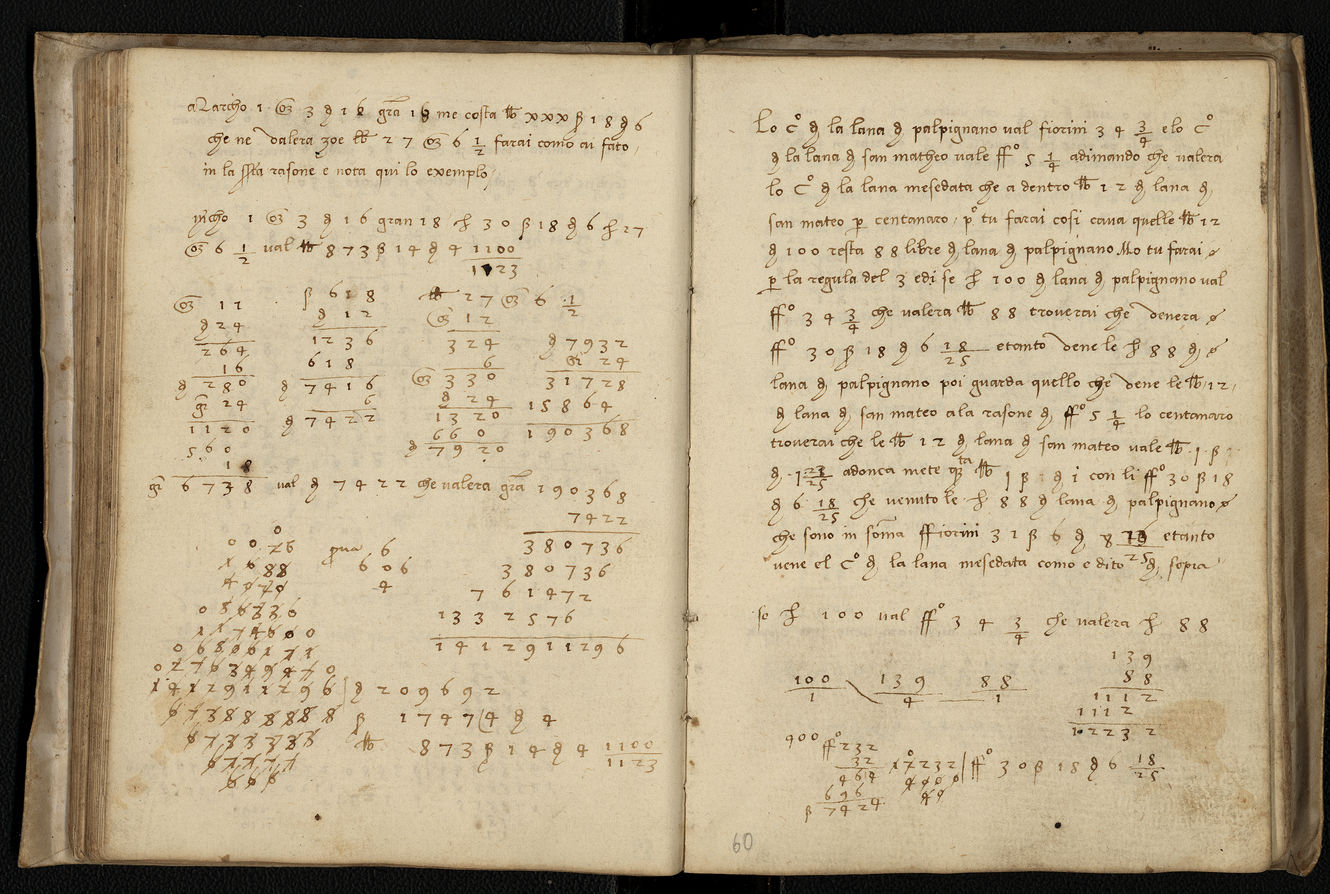 al archo 1 oz 3 d 16 gra 18 me costa lb xxx ß 18 d 6
che ne valera zoe lb 27 oz 6 1/2 farai como ai fato
in la ssta rasone e nota qui lo exemplo
1 oz 3 d 16 gran 18 lb 30 ß 18 d 6 lb 27
oz 6 1/2 val lb 873 ß 14 d 4 1100/1123
oz 11
d 24
264
16
d 280
gr 24
1120
560
18
gr 6738
ß 618
d 12
1236
618
d 7416
6
d 7422
lb 27 oz 6 1/2
oz 12
324
6
oz 330
d 24
1320
660
d 7920
d 7932
gr 24
31728
15864
190368
val d 7422 che valera gra 190368
7422
380736
380736
761472
1332576
1412911296
prua 6
6 0 6
4
1412911296 | d 209692
ß 1747 (4 d 4
lb 873 ß 14 d 4 1100/1123
Lo c° d la lana d palpignano val fiorini 34 3/4 e lo c°
d la lana d san matheo vale ff° 5 1/4 adimando che valera
lo c° d la lana mesedata che a dentro lb 12 d lana d
san mateo p centanaro p° tu farai cosi cava quelle lb 12
d 100 resta 88 libre d lana d palpignano Mo tu farai
p la regula del 3 e di se lb 100 d lana d palpignano val
ff° 34 3/4 che valera lb 88 troverai che venera
ff° 30 ß 18 d 6 18/25 e tanto vene le lb 88 d
lana d palpignano poi guarda quello che vene le lb 12
d lana d san mateo a la rasone d ff° 5 1/4 lo centanaro
troverai che le lb 12 d lana d san mateo vale lb 1 ß 1
d 1 23/25 adonca mete qsta lb 1 ß 1 d 1 con li ff° 30 ß 18
d 6 18/25 che venuto le lb 88 d lana d palpignano
che sono in soma ffiorini 32 ß 6 d 8 /25 e tanto
vene el c° d la lana mesedata como e dito d sopra
se lb 100 val ff° 34 3/4 che valera lb 88
139
88
1112
1112
12232
100/1 139/4 88/1
400
ff° 232
32
464
696
ß 7424
12232 | ff° 30 ß 18 d 6 18/25
4000
40
60